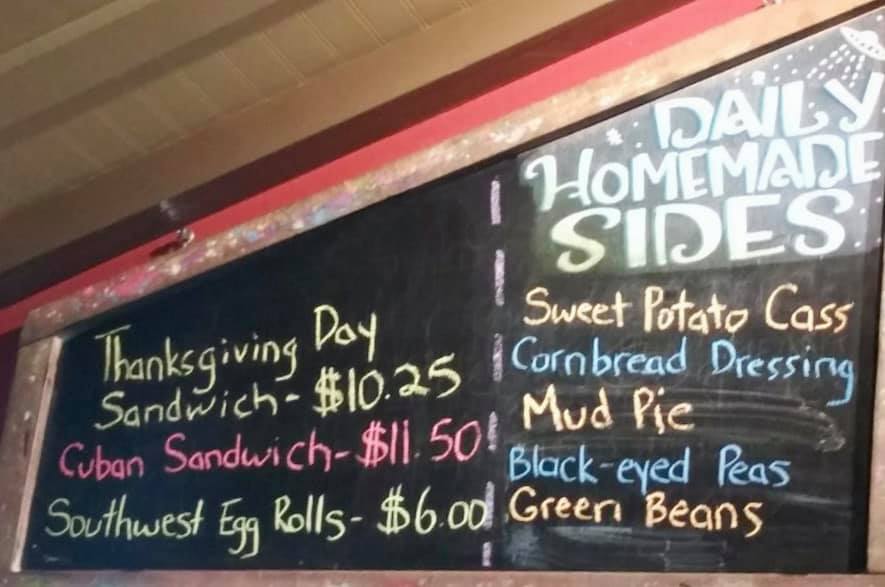 Thanksgiving Day
Sandwich- $10.25
Cuban Sandwich- $11.50
Southwest Egg Rolls- $6.00
DAILY
HOMEMADE
SIDES
Sweet Potato Cass
Cornbread Dressing
Mud Pie
Black-eyed Peas
Green Beans